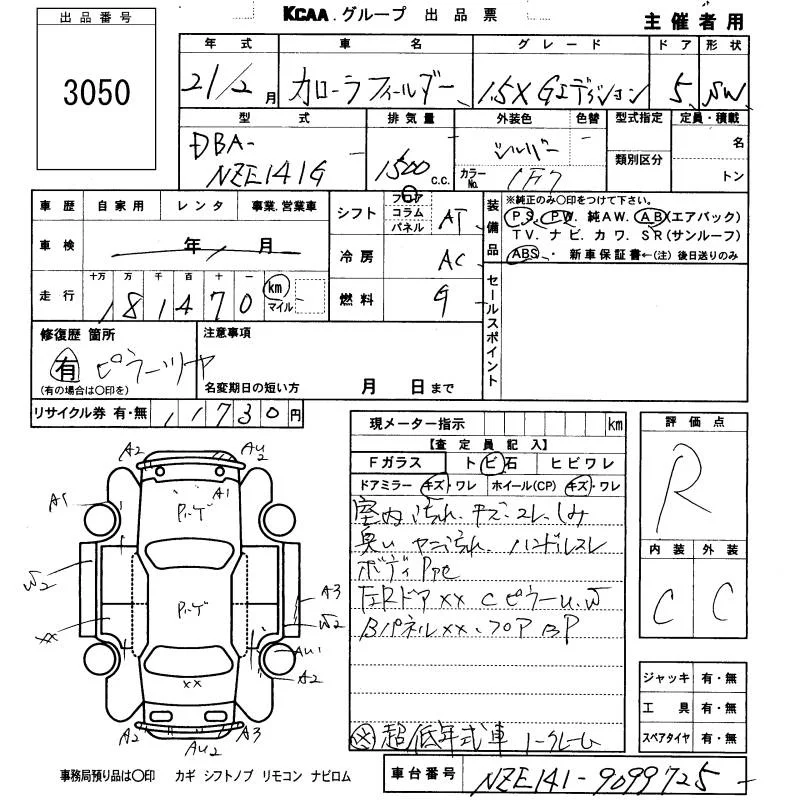 KCAA.グループ 出品票
主催者用
出品番号
3050
年式 車名 グレード ドア 形状
21/2月 カローラフィールダー 1.5X Gエディション 5 SW
型式 排気量 外装色 色替 型式指定 定員・積載
DBA-NZE141G 1500 c.c. シルバー カラーNo. 1F7 類別区分 名 トン
車歴 自家用 レンタ 事業.営業車
車検 年 月
走行 十万 万 千 百 十 一
181470 km マイル
シフト フロア コラム パネル AT
冷房 AC
燃料 G
装備品 ※純正のみ○印をつけて下さい。
PS. PW. 純AW. AB(エアバック)
TV. ナビ. カワ. SR(サンルーフ)
ABS. 新車保証書←(注)後日送りのみ
セールスポイント
修復歴 箇所
有 ピラーツヤ
(有の場合は○印を)
注意事項
名変期日の短い方 月 日まで
リサイクル券 有・無 11730円
現メーター指示 km
【査定員記入】
Fガラス トビ石 ヒビワレ
ドアミラー キズ・ワレ ホイール(CP) キズ・ワレ
室内汚れ.キズ.スレ.しみ
臭い ヤニ汚れ.ハンドルスレ
ボディ
左Rドア XX Cピラー U.W
Bパネル XX.フロア BP
超/低年式車 ノークレーム
評価点
R
内装 外装
C C
ジャッキ 有・無
工具 有・無
スペアタイヤ 有・無
A2 AU2
A1 A1
Pいゲ
W2 Pいゲ A3
W2
XX AU1
XX A2
A2 AU2 A3
事務局預り品は○印 カギ シフトノブ リモコン ナビロム
車台番号 NZE141-9099725